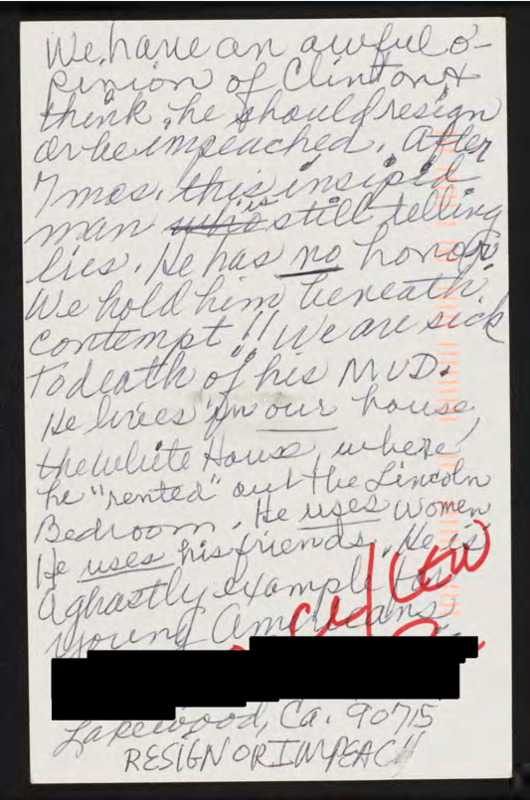 We have an awful o-
pinion of Clinton &
think he should resign
or be impeached. After
7 mos. this insipid
man who is still telling
lies. He has no honor.
We hold him beneath
contempt!! We are sick
to death of his MUD.
He lives in our house,
the White House, where
he "rented" out the Lincoln
Bedroom. He uses women
He uses his friends. He is
a ghastly example to
young Americans
Lakewood, Ca. 90715
RESIGN OR IMPEACH